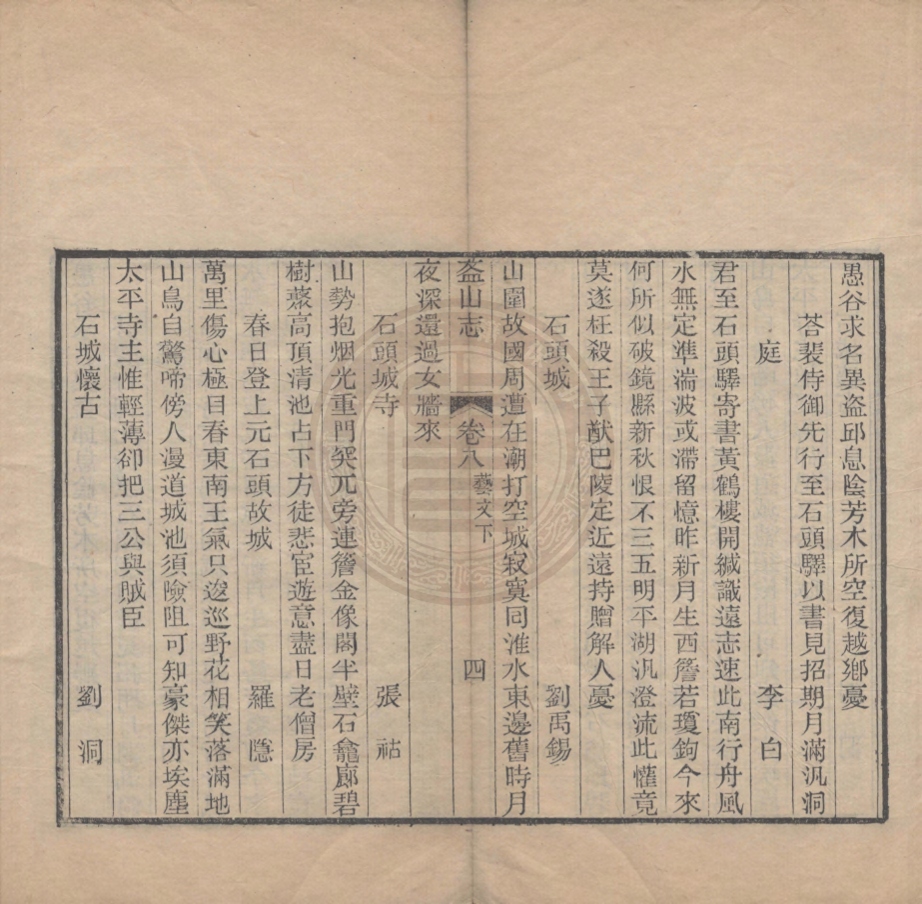 愚谷求名異盜邱息陰芳木所空復越鄉憂
荅裴侍御先行至石頭驛以書見招期月滿汎洞
庭 李白
君至石頭驛寄書黃鶴樓開緘識遠志速此南行舟風
水無定準湍波或滯留憶昨新月生西簷若瓊鉤今來
何所似破鏡縣新秋恨不三五明平湖汎澄流此懽竟
莫遂枉殺王子猷巴陵定近遠持贈解人憂
石頭城 劉禹錫
山圍故國周遭在潮打空城寂寞回淮水東邊舊時月
盋山志 卷八 藝文下 四
夜深還過女牆來
石頭城寺 張祜
山勢抱烟光重門突兀旁連簷金像閣半壁石龕廊碧
樹藂高頂清池占下方徒悲宦遊意盡日老僧房
春日登上元石頭故城 羅隱
萬里傷心極目春東南王氣只逡巡野花相笑落滿地
山鳥自驚啼傍人漫道城池須險阻可知豪傑亦埃塵
太平寺主惟輕薄卻把三公與賊臣
石城懷古 劉洞